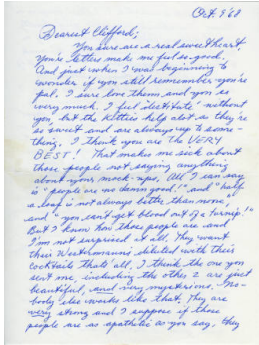 Oct. 9 '68
Dearest Clifford;
You sure are a real sweetheart.
You're letters make me feel so good.
And just when I was beginning to
wonder if you still remember you're
pal. I sure love them and you so
very much. I feel destitute without
you, but the kitties help alot as they're
so sweet and are always up to some-
thing. I think you are the VERY
BEST! That makes me sick about
those people not saying anything
about your mock-ups. All I can say
is "people are no damn good!" and "half
a loaf is not always better than none,"
and "you can't get blood out of a turnip!"
But I know how those people are and
I'm not surprised at all. They want
their Westermanns diluted with their
cocktails thats all. I think the one you
sent me, including the other 2 are just
beautiful, and very mysterious. No-
body else works like that. They are
very strong and I suppose if those
people are as apathetic as you say, they